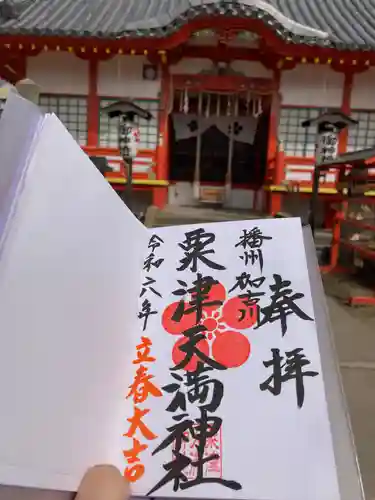 奉拝
播州加古川
粟津天満神社
令和六年
立春大吉